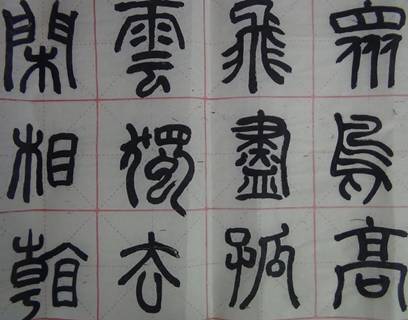 眾鳥高
飛盡孤
雲獨去
閑相看